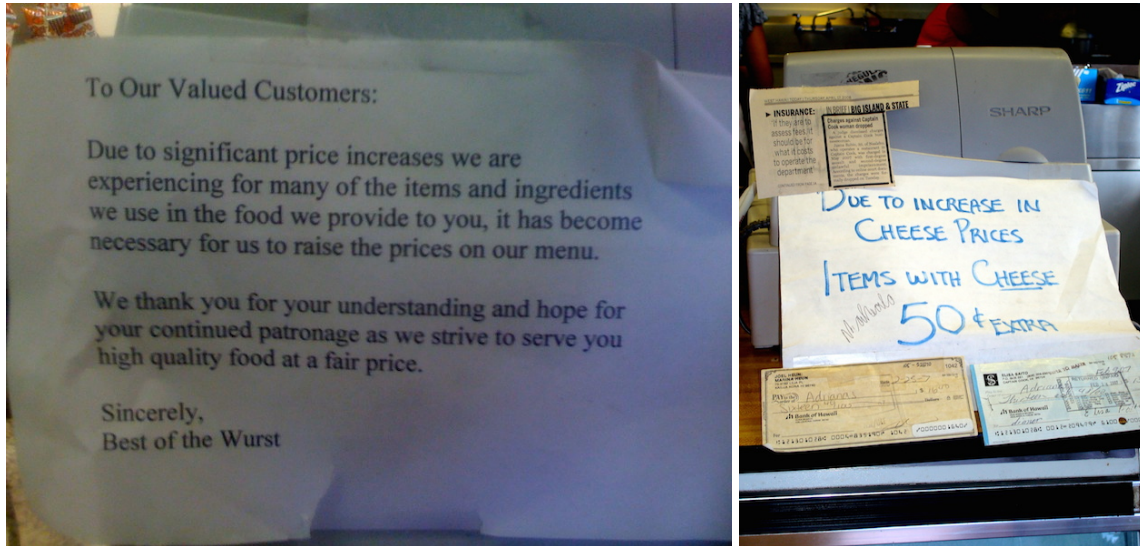 To Our Valued Customers:
Due to significant price increases we are
experiencing for many of the items and ingredients
we use in the food we provide to you, it has become
necessary for us to raise the prices on our menu.
We thank you for your understanding and hope for
your continued patronage as we strive to serve you
high quality food at a fair price.
Sincerely,
Best of the Wurst
SHARP
Ziploc
IN BRIEF | BIG ISLAND & STATE
INSURANCE:
'If they are to
assess fees, it
should be for
what it costs
to operate the
department'
Charges against Captain
Cook woman dropped
DUE TO INCREASE IN
CHEESE PRICES
ITEMS WITH CHEESE
50¢ EXTRA
1042
Adriana's
Bank of Hawaii
Bank of Hawaii